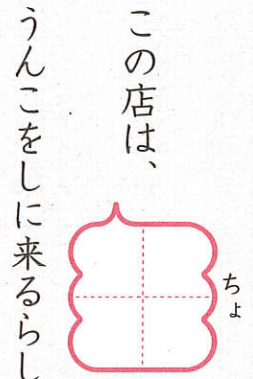 この店は、
ちょ
うんこをしに来るらし